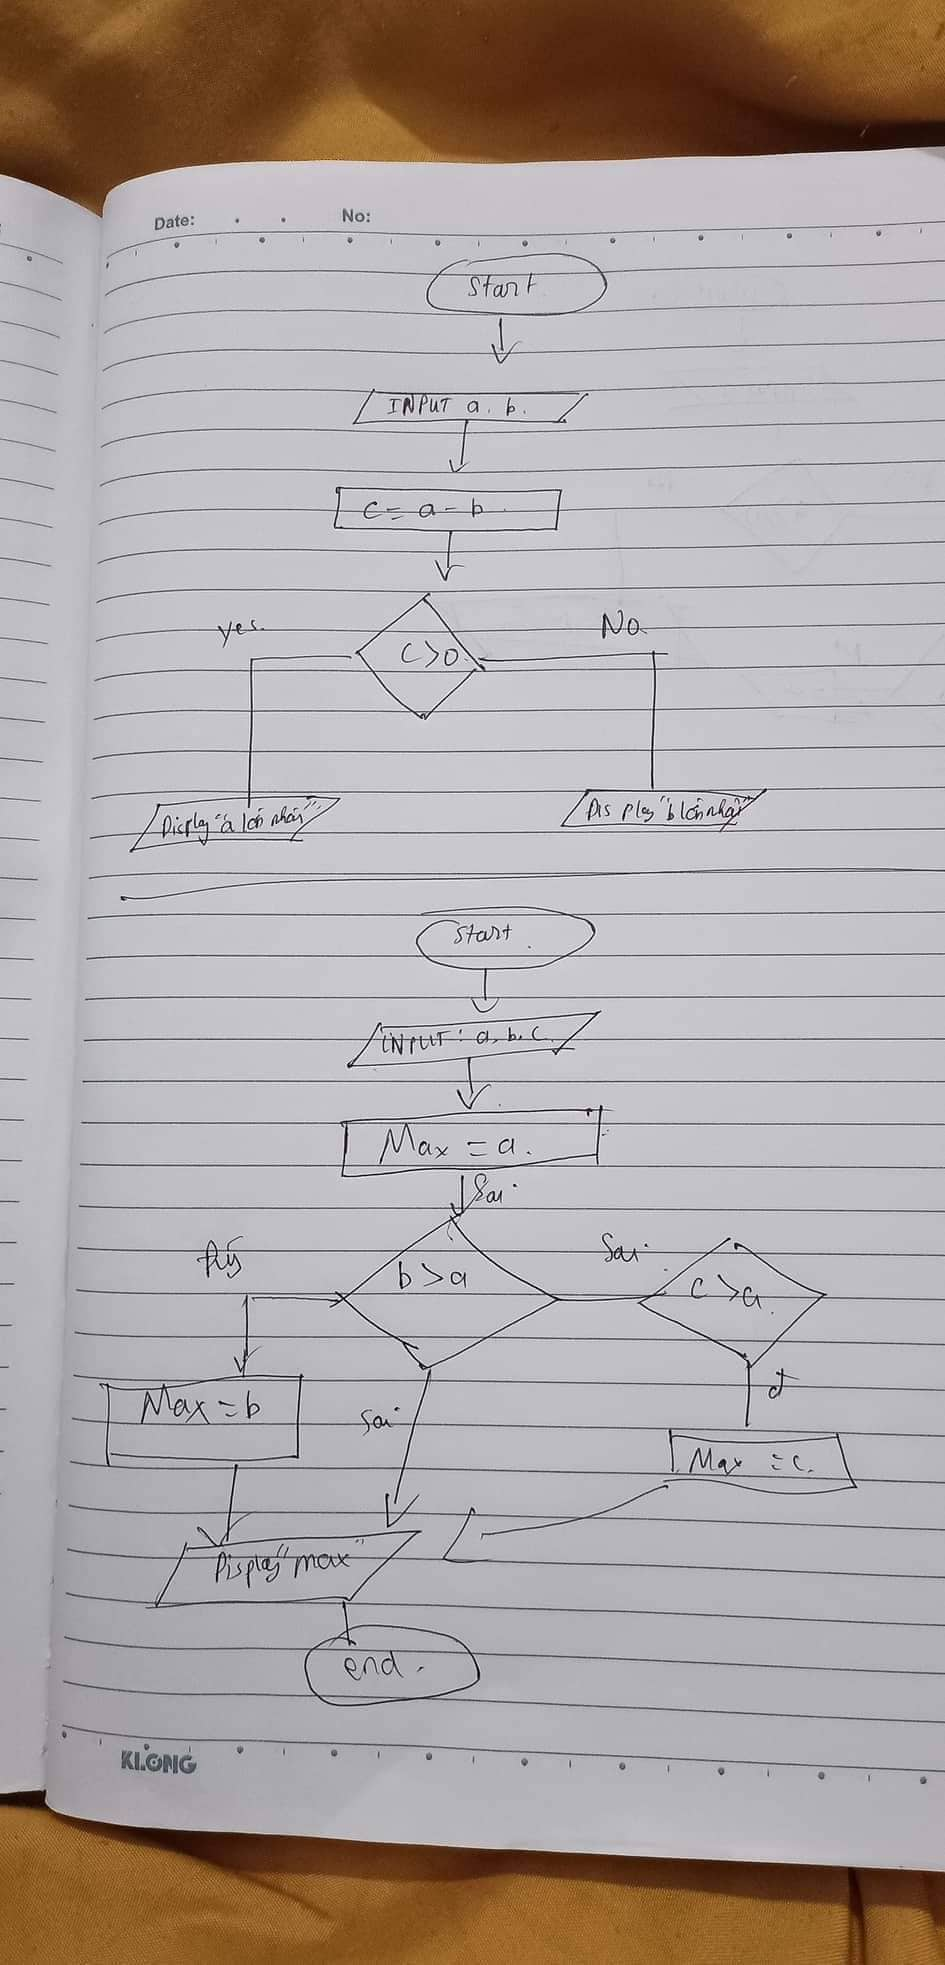 Date: . . No:
Start
INPUT a, b.
c = a - b
yes. No
c>0
Display "a lớn nhất" Display "b lớn nhất"
Start
INPUT: a, b, c
Max = a.
Sai
Sai
b>a c>a.
đ
Max = b Sai Max = c.
Display "max"
end.
KLONG